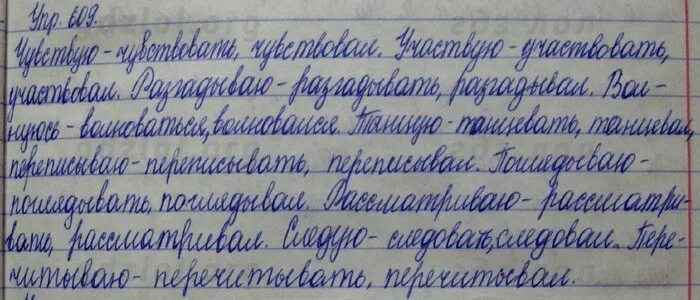 Упр. 609.
Чувствую - чувствовать, чувствовал. Участвую - участвовать,
участвовал. Разгадываю - разгадывать, разгадывал. Вол-
нуюсь - волноваться, волновался. Танцую - танцевать, танцевал,
переписываю - переписывать, переписывал. Поглядываю -
поглядывать, поглядывал. Рассматриваю - рассматри-
вать, рассматривал. Следую - следовать, следовал. Пере-
читываю - перечитывать, перечитывал.